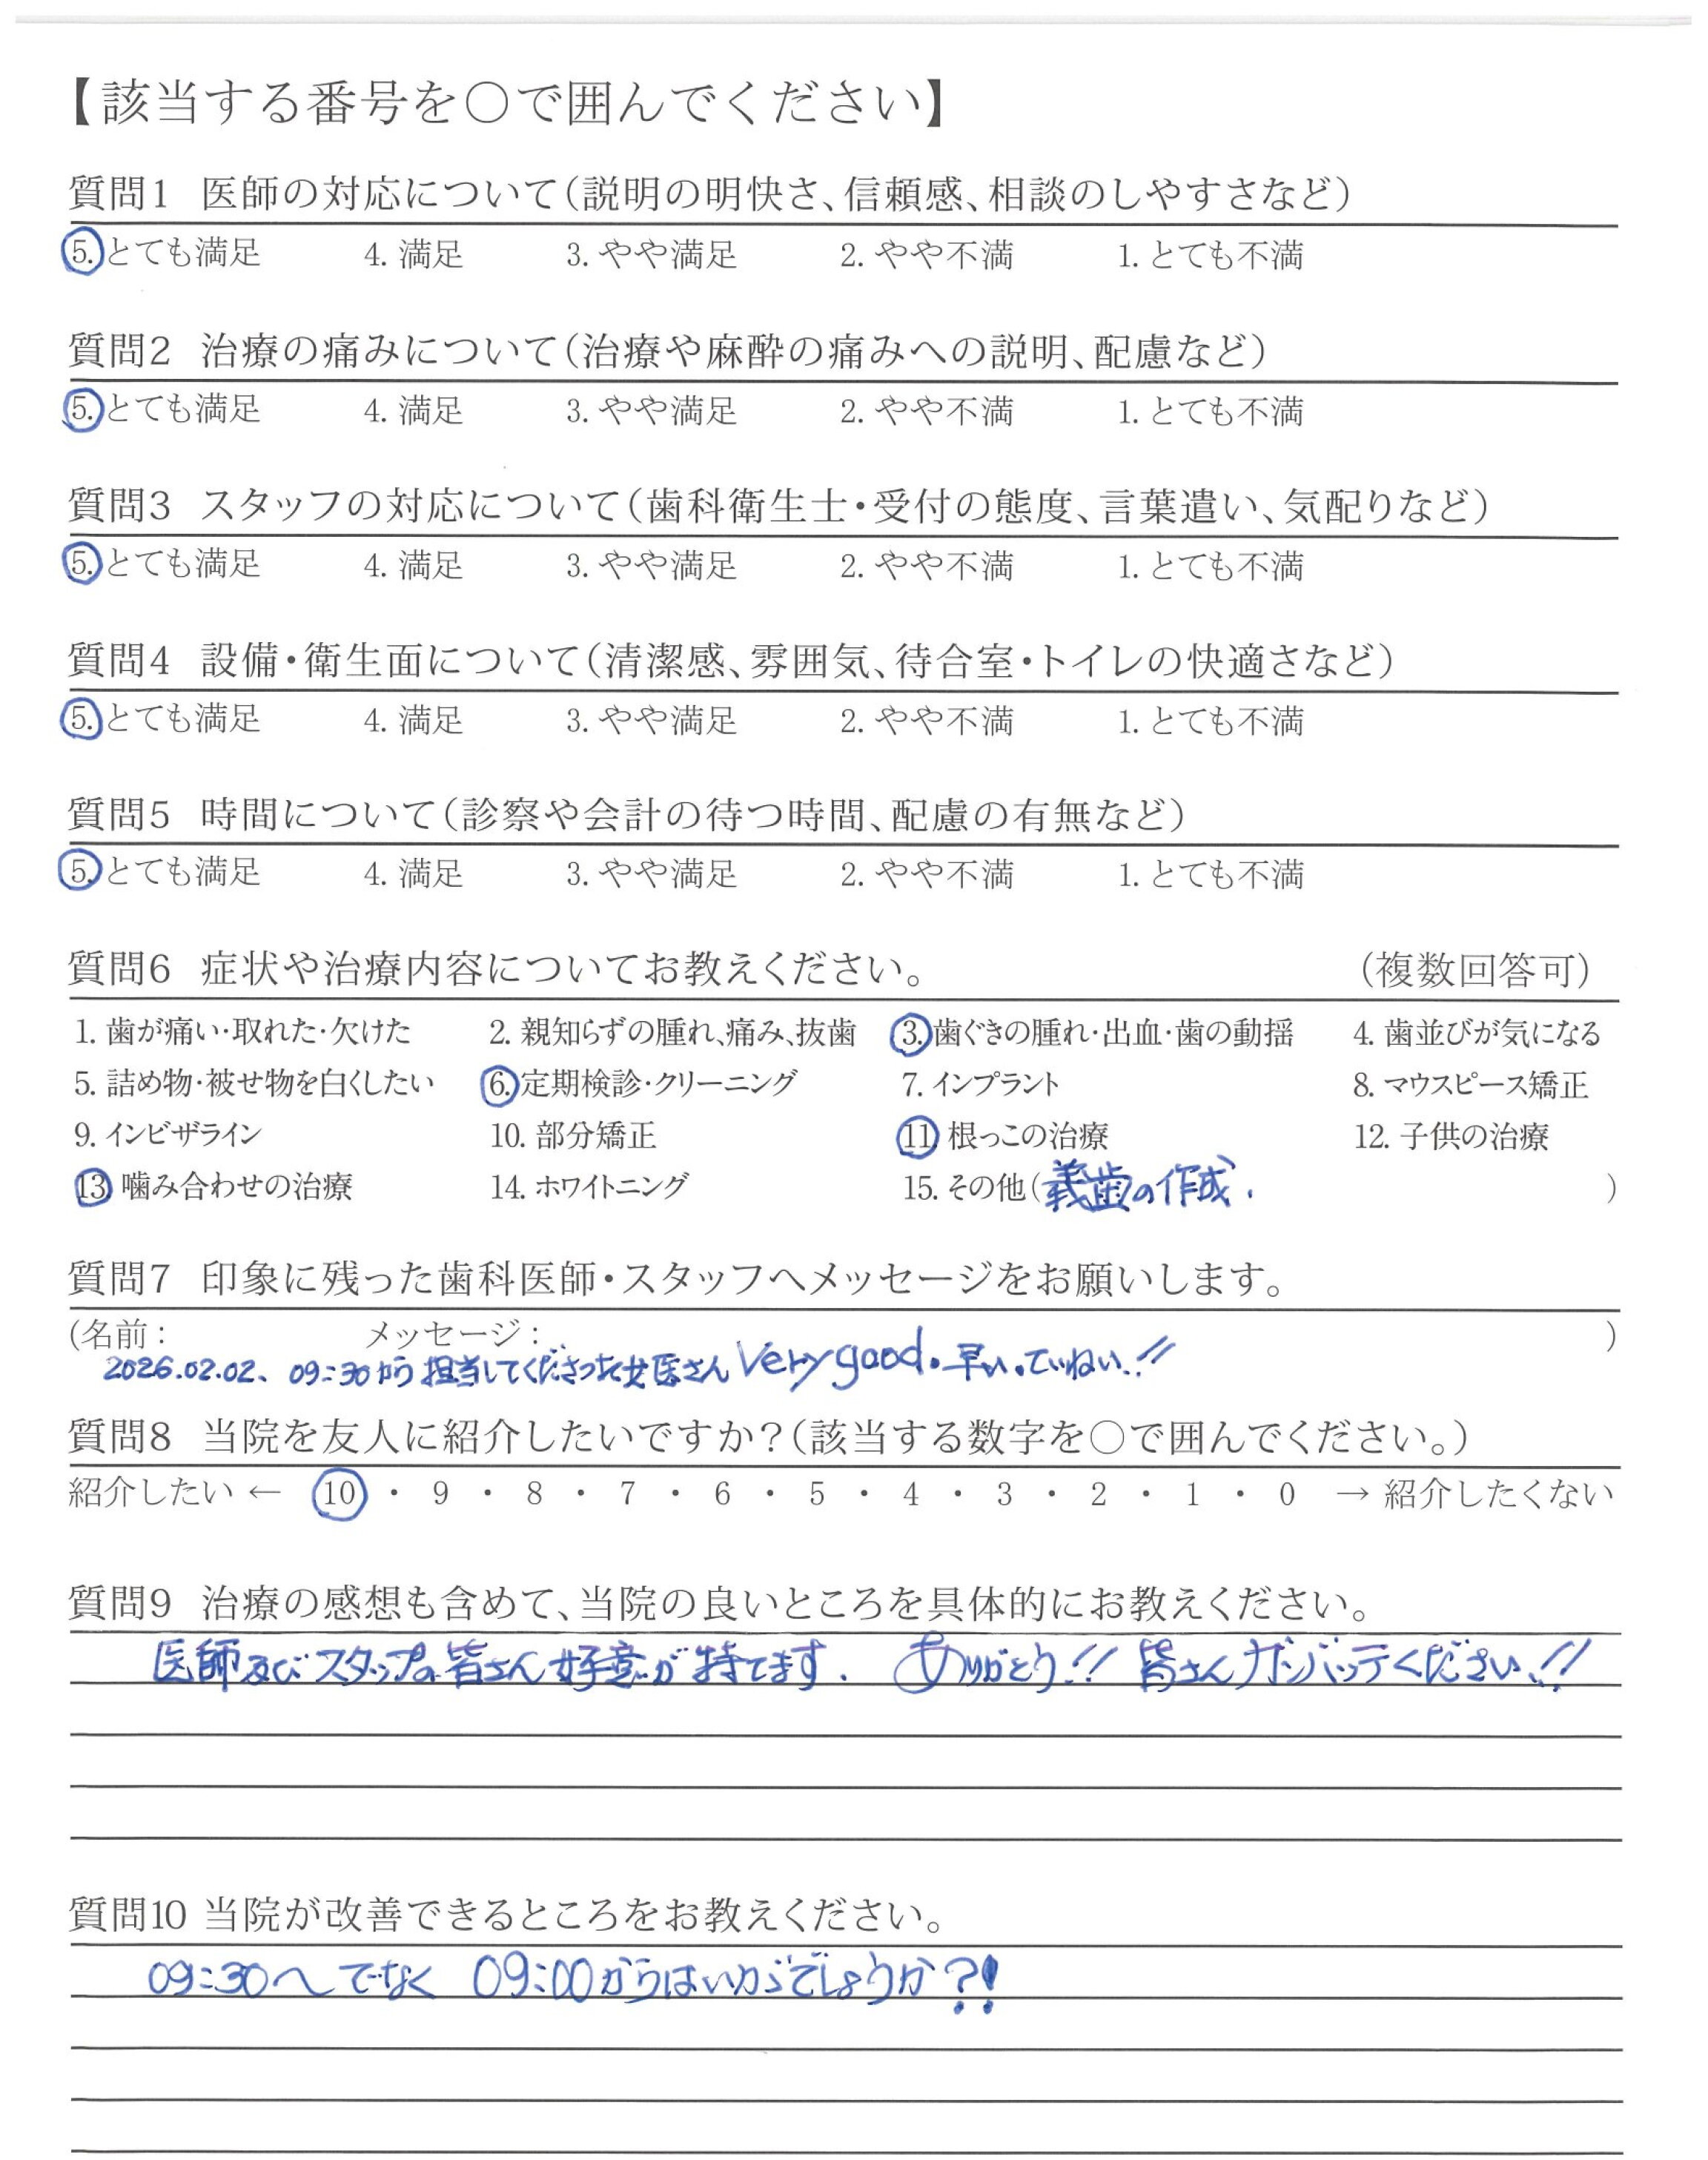 【該当する番号を○で囲んでください】
質問1 医師の対応について(説明の明快さ、信頼感、相談のしやすさなど)
5. とても満足 4. 満足 3. やや満足 2. やや不満 1. とても不満
質問2 治療の痛みについて(治療や麻酔の痛みへの説明、配慮など)
5. とても満足 4. 満足 3. やや満足 2. やや不満 1. とても不満
質問3 スタッフの対応について(歯科衛生士・受付の態度、言葉遣い、気配りなど)
5. とても満足 4. 満足 3. やや満足 2. やや不満 1. とても不満
質問4 設備・衛生面について(清潔感、雰囲気、待合室・トイレの快適さなど)
5. とても満足 4. 満足 3. やや満足 2. やや不満 1. とても不満
質問5 時間について(診察や会計の待つ時間、配慮の有無など)
5. とても満足 4. 満足 3. やや満足 2. やや不満 1. とても不満
質問6 症状や治療内容についてお教えください。 (複数回答可)
1. 歯が痛い・取れた・欠けた 2. 親知らずの腫れ、痛み、抜歯 3. 歯ぐきの腫れ・出血・歯の動揺 4. 歯並びが気になる
5. 詰め物・被せ物を白くしたい 6. 定期検診・クリーニング 7. インプラント 8. マウスピース矯正
9. インビザライン 10. 部分矯正 11. 根っこの治療 12. 子供の治療
13. 噛み合わせの治療 14. ホワイトニング 15. その他(義歯の作成. )
質問7 印象に残った歯科医師・スタッフへメッセージをお願いします。
(名前: メッセージ: )
2026.02.02、09:30から担当してくださった女医さん Very good. 早い。ていねい!!
質問8 当院を友人に紹介したいですか?(該当する数字を○で囲んでください。)
紹介したい ← 10 ・ 9 ・ 8 ・ 7 ・ 6 ・ 5 ・ 4 ・ 3 ・ 2 ・ 1 ・ 0 → 紹介したくない
質問9 治療の感想も含めて、当院の良いところを具体的にお教えください。
医師及びスタッフの皆さん好意が持てます. ありがとう!! 皆さんガンバッテください!!
質問10 当院が改善できるところをお教えください。
09:30〜でなく 09:00からはいかがでしょうか?!